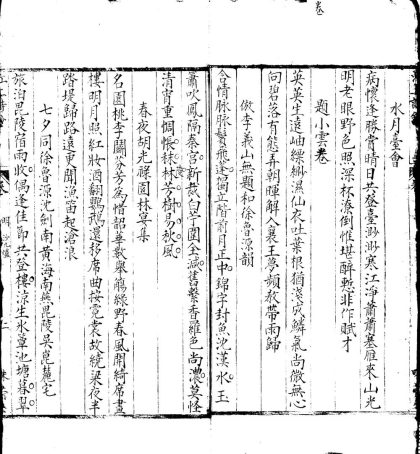 水月臺會
病懷逢勝賞晴日共登臺渺渺寒江淨蕭蕭塞雁來山光
明老眼野色照深杯潦倒惟堪醉慙非作賦才
題小雲卷
英英生遠岫縹緲濕仙衣吐葉根猶淺成鱗氣尚微無心
向碧落有態弄朝暉解入襄王夢頻教帶雨歸
倣李義山無題和徐魯源韻
含情脉脉鬢飛蓬獨立階前月正中錦字封魚池漢水玉
簫吹鳳隔秦宮新裁白苧團全濕舊繫香羅色尚濃莫怪
清宵重惆悵緑林芳樹易秋風
春夜胡光祿園林草集
名園桃李闢芬芳為惜韶華數舉觴綠野春風開綺席畫
樓明月照紅妝酒翻鸚鵡還移席曲按霓裳故繞梁夜半
踏堤歸路遠更聞漁笛起滄浪
七夕同徐魯源沈劍南黃海南無毘陵吳崑麓宅
旅泊毘陵宿雨收偶逢佳節共登樓涼生水草池塘暮翠